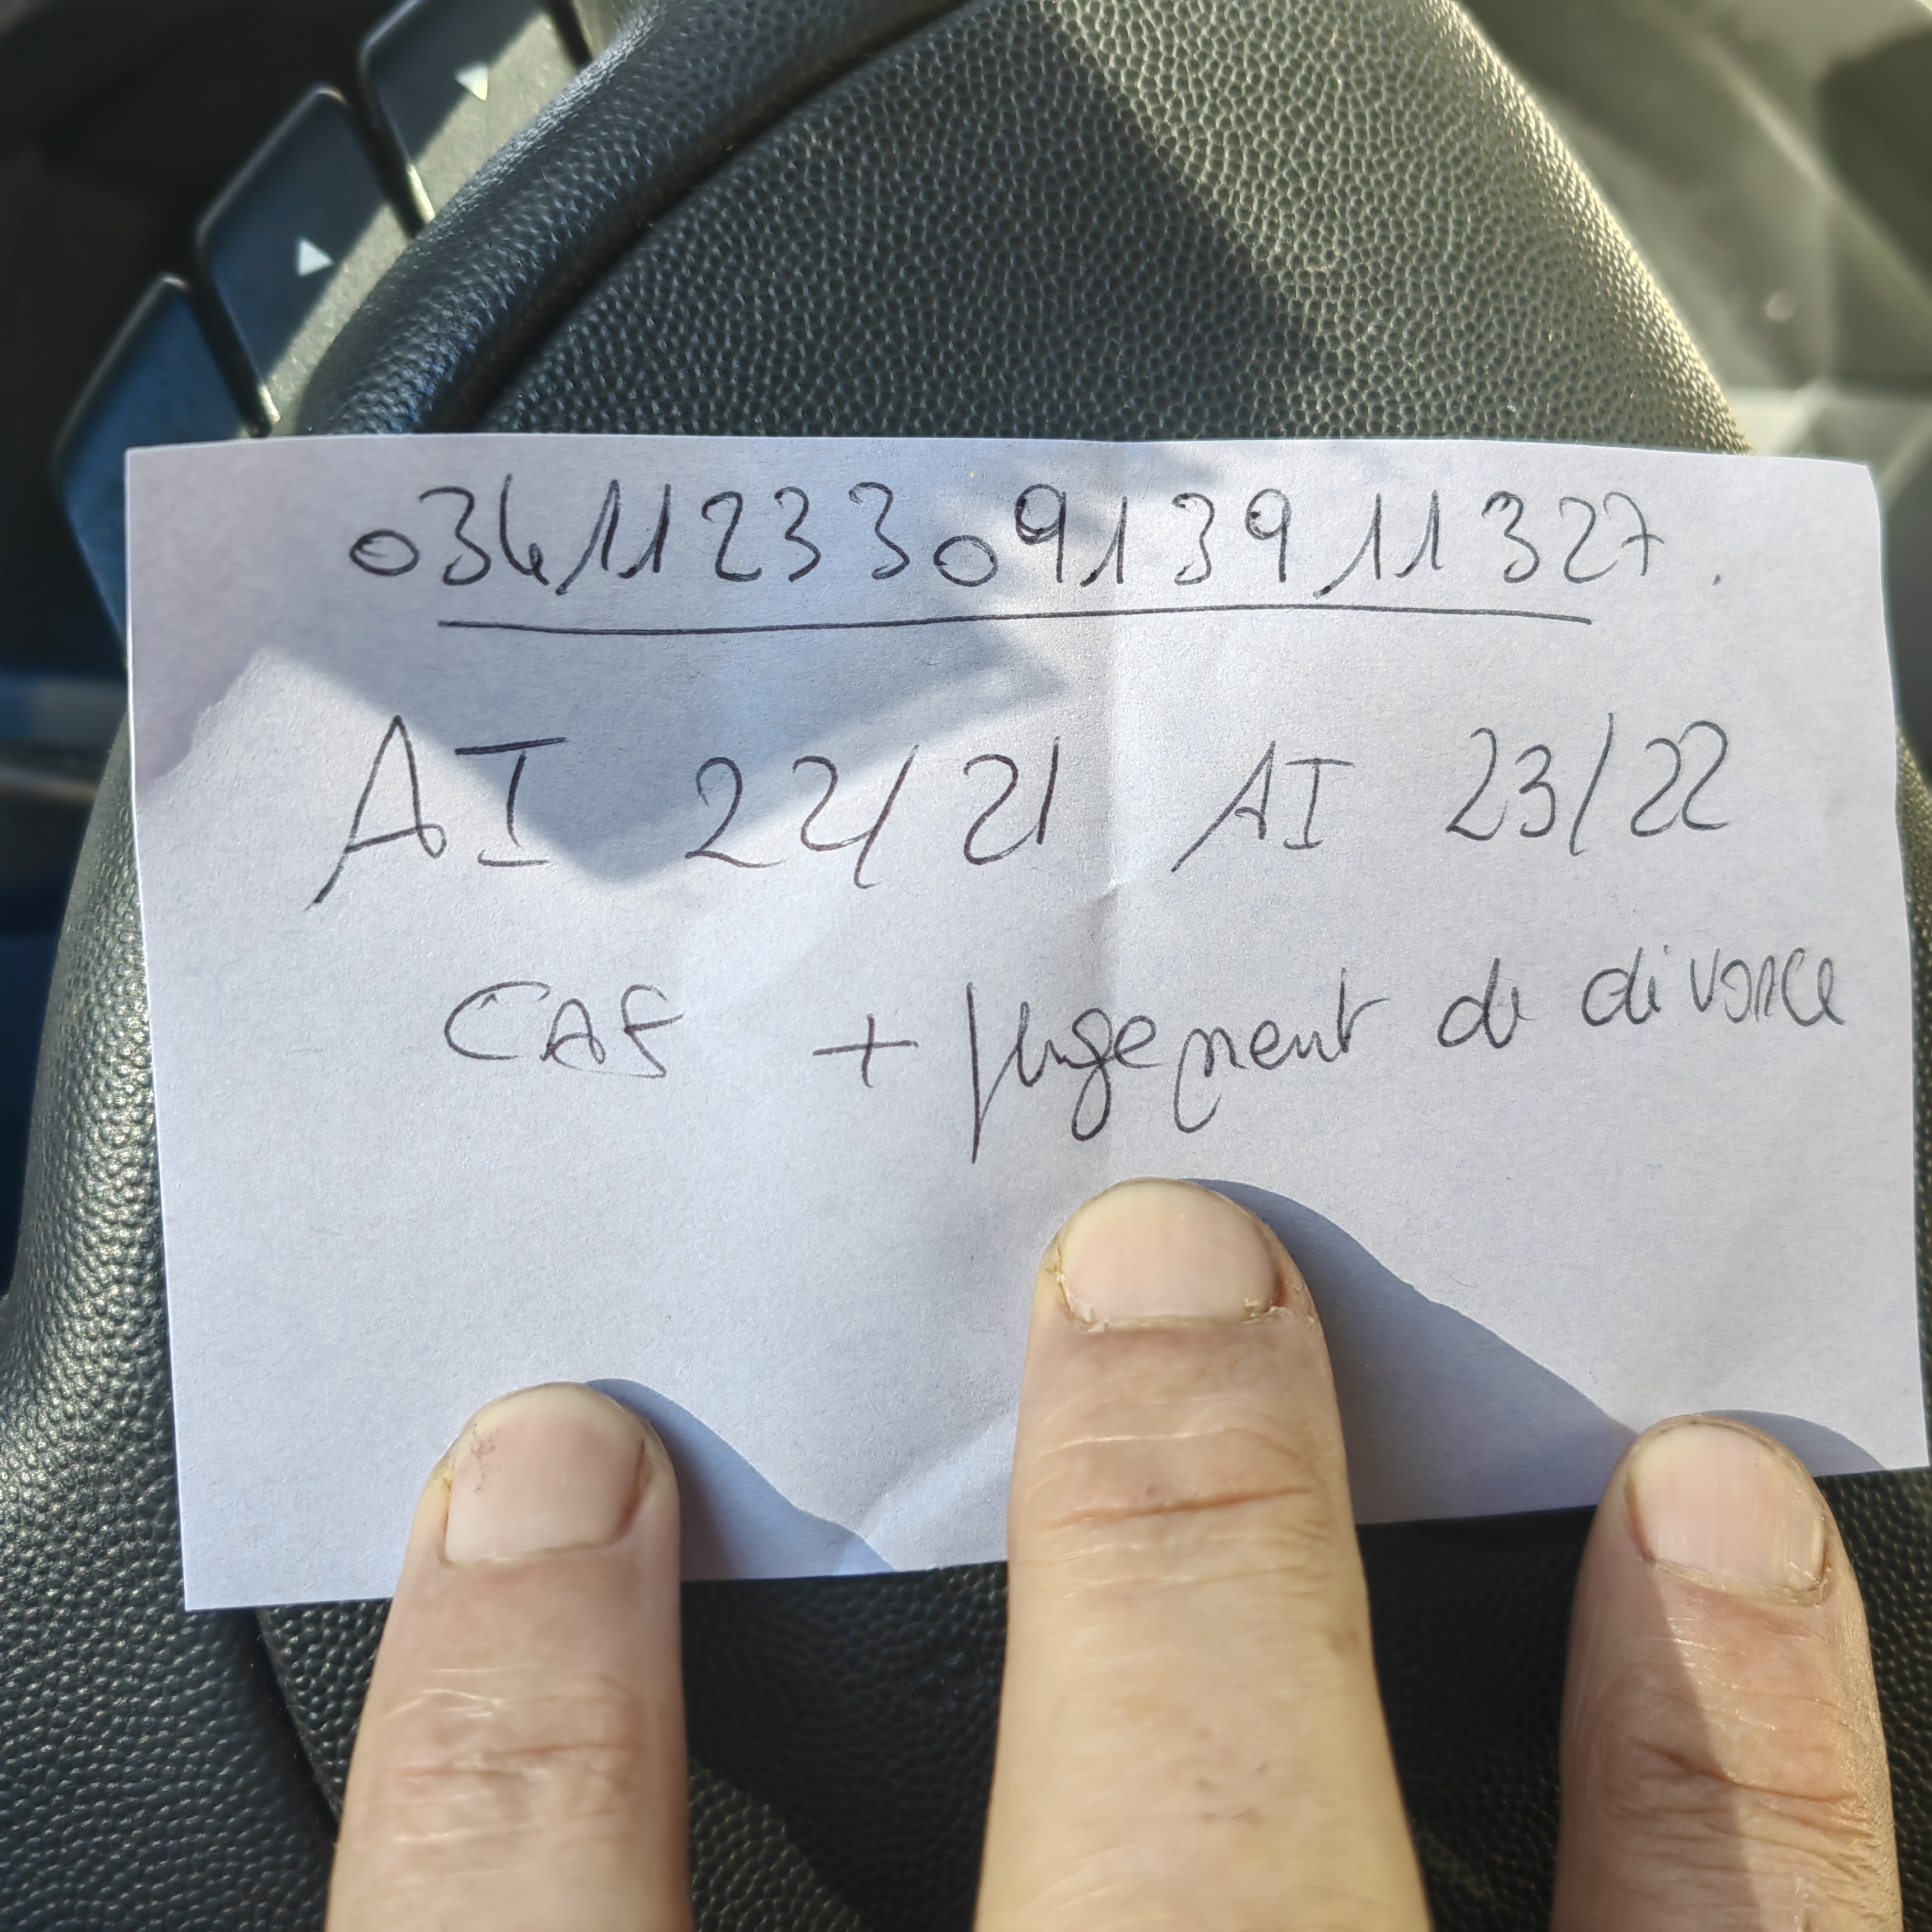 036112330913911327.
AI 22/21 AI 23/22
CAF + jugement de divorce